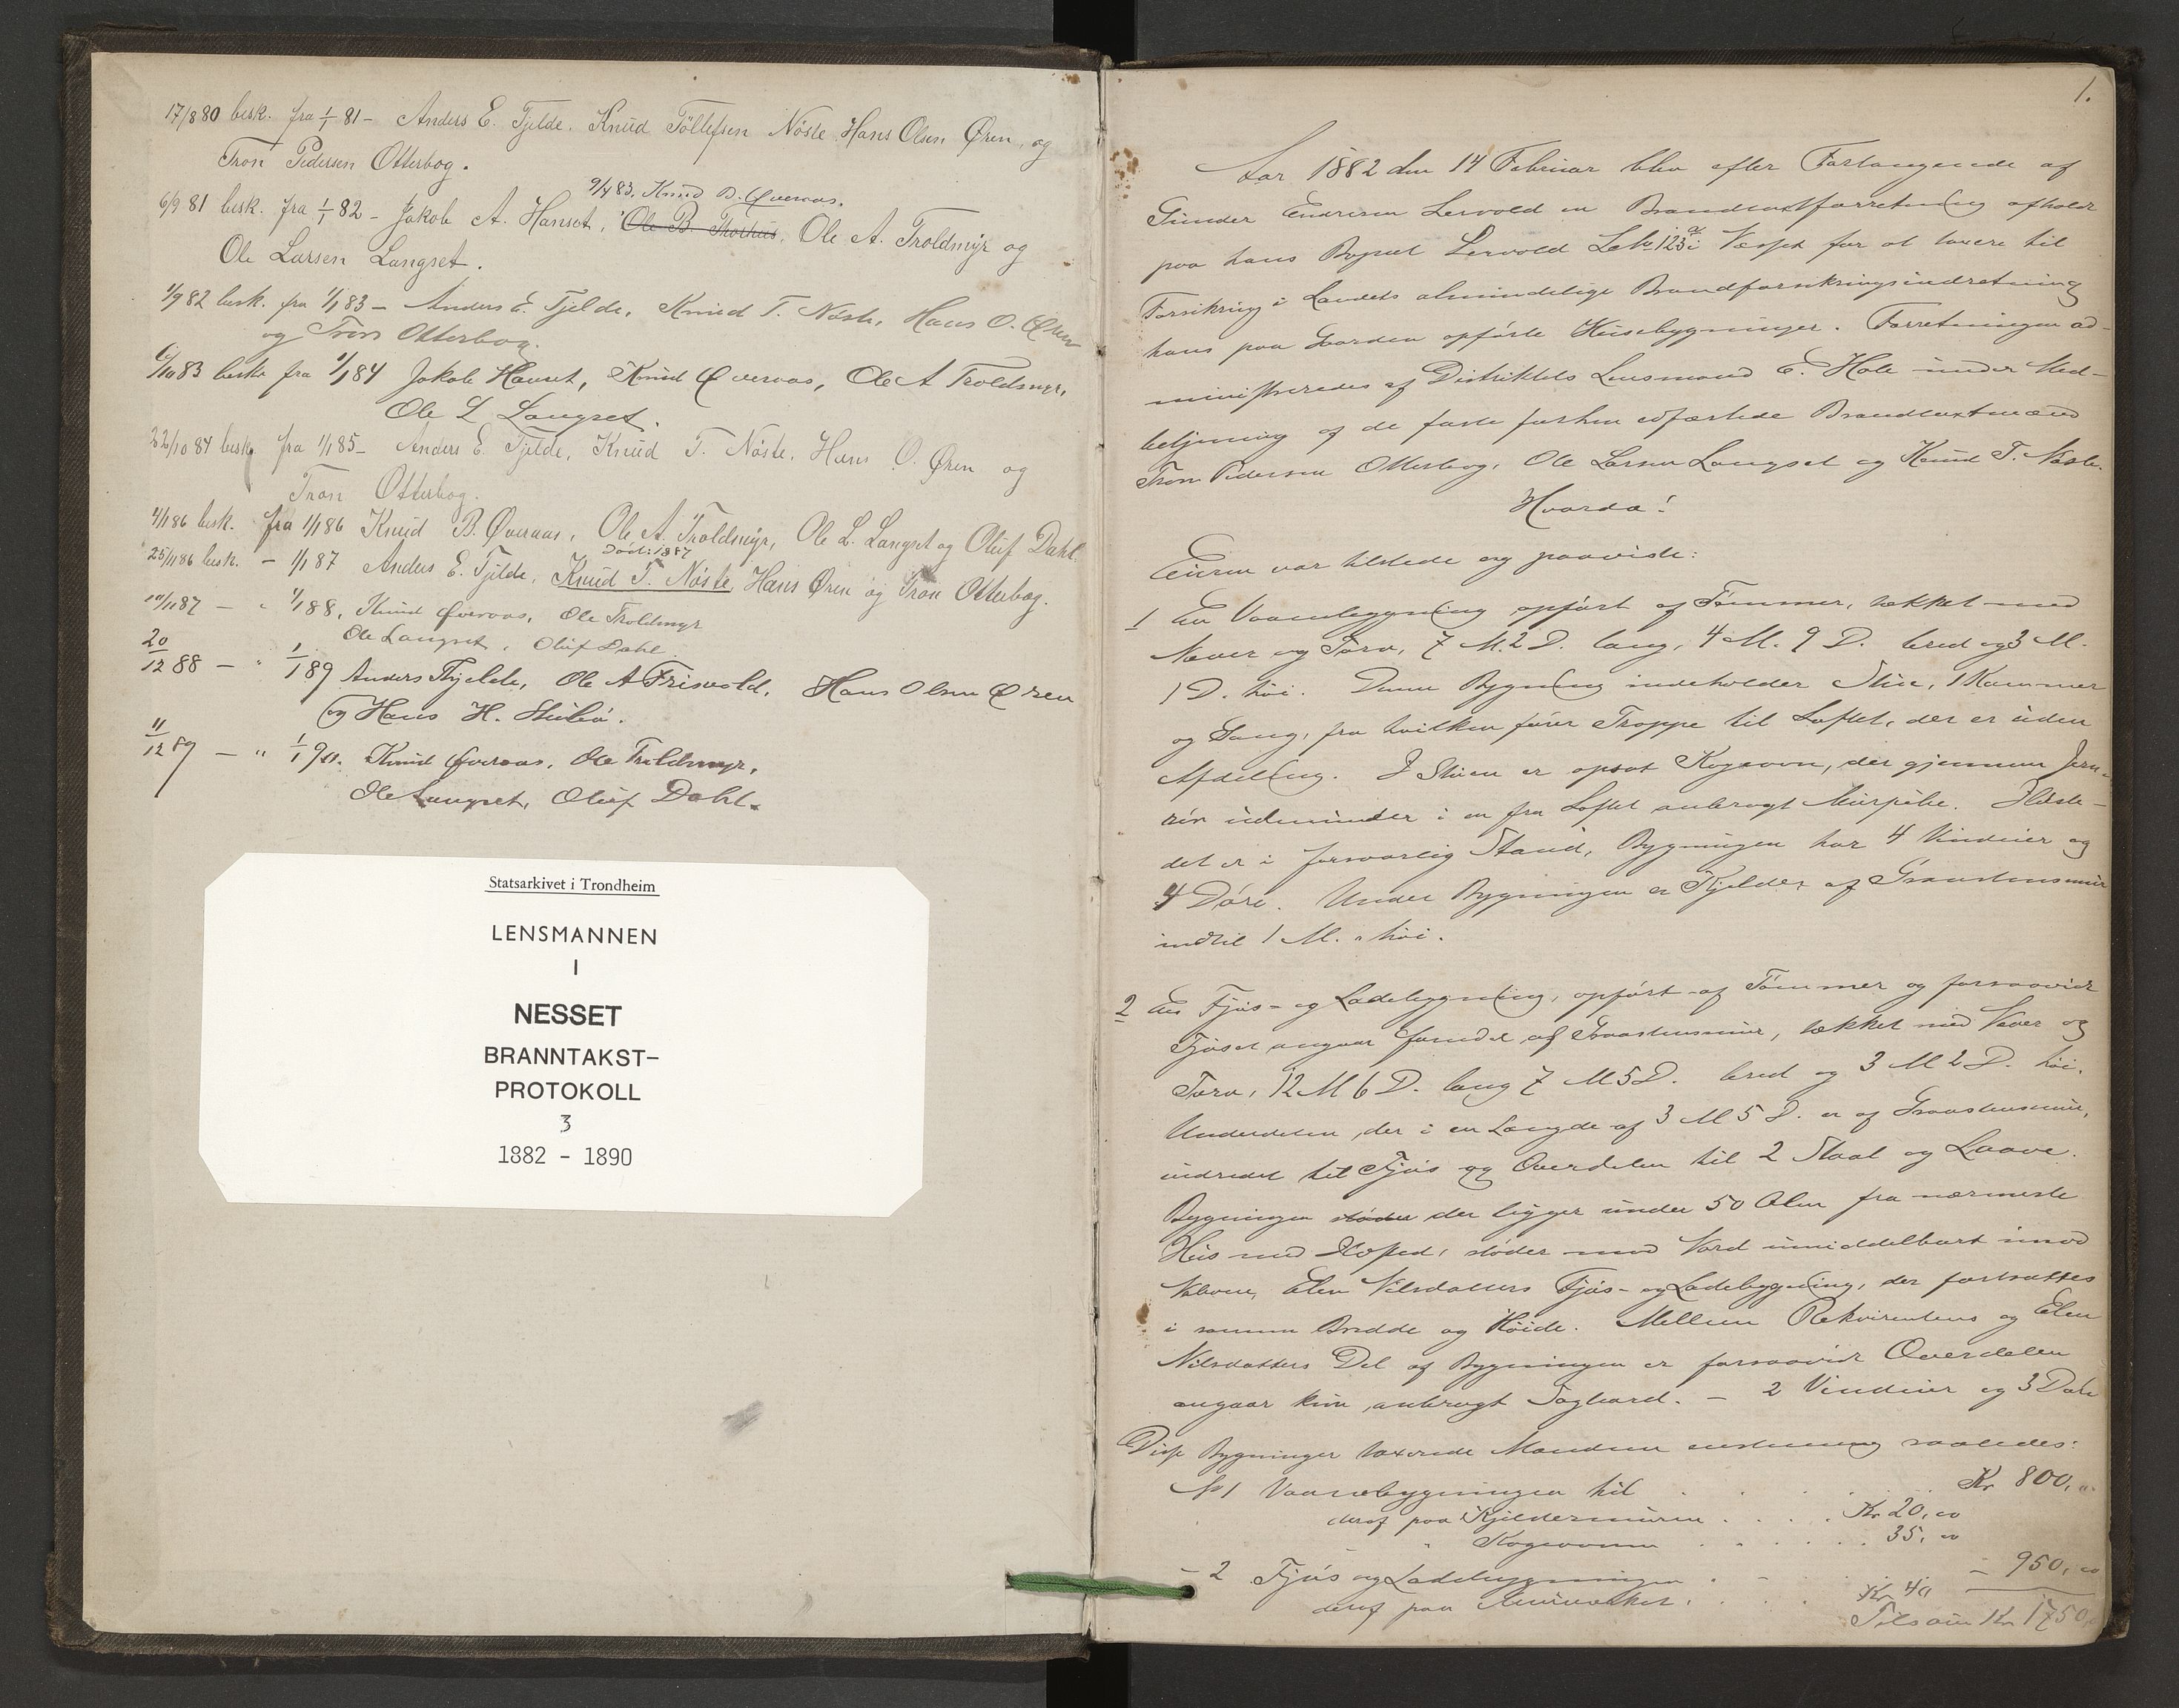 17/8 80 besk. fra 1/1 81 - Anders E. Tjelde. Knud Tollefsen Nöste. Hans Olsen Øren, og
Tron Pedersen Otterbog.
9/4 83. Knud B. Øveraas.
6/9 81 besk. fra 1/1 82 - Jakob A. Hanset, Ole B. Ole A. Troldmyr og
Ole Larsen Langset.
1/9 82 besk. fra 1/1 83 - Anders E. Tjelde, Knud T. Nöste, Hans O. Øren
og Tron Otterbog.
6/10 83 besk. fra 1/1 84 Jakob Hanset, Knud Øveraas, Ole A Troldmyr,
Ole L Langset.
22/10 84 besk. fra 1/1 85 - Anders E. Tjelde, Knud T. Nöste. Hans O. Øren og
Tron Otterbog.
4/1 86 besk. fra 1/1 86 Knud B. Øveraas, Ole A. Troldmyr, Ole L. Langset og Oluf Dahl.
Död: 1887
25/11 86 besk. - 1/1 87 Anders E. Tjelde, Knud T. Nöste, Hans Øren og Tron Otterbog.
/11 87 - " 1/1 88, Knud Øveraas, Ole Troldmyr
Ole Langset, Oluf Dahl.
20/12 88 - " 1/1 89 Anders Thjelde, Ole A Frisvold, Hans Olsen Øren
og Hans H.
11/12 89 - " 1/1 90. Knud Øveraas, Ole Troldmyr,
Ole Langset, Oluf Dahl.
Statsarkivet i Trondheim
LENSMANNEN
I
NESSET
BRANNTAKST-
PROTOKOLL
3
1882 - 1890
1.
Aar 1882 den 14 Februar blev efter Forlangende af
Gunder Endresen Lervold en Brandtaxtforretning afholdt
paa hans Bygsel Lervold Lbn 123 a i Vespt for at taxere til
Forsikring i Landets almindelige Brandforsikringsindretning
hans paa Gaarden opførte Husebygninger. Forretningen ad-
ministreredes af Distriktets Lensmand E. Hole under Med-
betjening af de faste forhen edfæstede Brandtaxtmænd
Tron Pedersen Otterbog, Ole Larsen Langset og Knud T. Nöste.
Hvorda!
Eieren var tilstede og paaviste:
1 En Vaanebygning opført af Tømmer, tækket med
Næver og Torv, 7 M. 2 D. lang, 4 M. 9 D. bred og 3 M.
1 D. høi. Denne Bygning indeholder Stue, 1 Kammer
og Gang, fra hvilken fører Trappe til Loftet, der er uden
Afdeling. I Stuen er opsat Kogeovn, der gjennem Jern-
rør udmunder i en fra Loftet anbragt Murpibe. Ildste-
det er i forsvarlig Stand, Bygningen har 4 Vinduer og
4 Døre. Under Bygningen er Kjelder af Graastensmur
indtil 1 M. høi.
2 En Fjøs- og Ladebygning, opført af Tømmer og forsaavidt
Fjøset angaar forendel af Graastensmur, tækket med Næver og
Torv, 12 M 6 D. lang 7 M 5 D. bred og 3 M 2 D. høi.
Underdelen, der i en Længde af 3 M 5 D. er af Graastensmur,
indredet til Fjøs og Overdelen til 2 Staal og Laave.
Bygningen støder der ligger under 50 Alen fra nærmeste
Hus med Ildsted, støder mod Nord umiddelbart imod
Naboen, Elen Nilsdatters Fjøs- og Ladebygning, der fortsættes
i samme Bredde og Høide. Mellem Rekvirentens og Elen
Nilsdatters Del af Bygningen er forsaavidt Overdelen
angaar kun anbragt Sagbord. - 2 Vinduer og 3 Døre
Disse Bygninger taxerede Mændene eenstemmig saaledes:
№ 1 Vaanebygningen til . . . Kr 800, "
deraf paa Kjeldermuren . . . . Kr 20, 00
" Kogeovnen . . . . . . 35, 00
- 2 Fjøs og Ladebygningen . . . - 950, 00
deraf paa Murværket . . . . Kr 40
Tilsam Kr 1750,